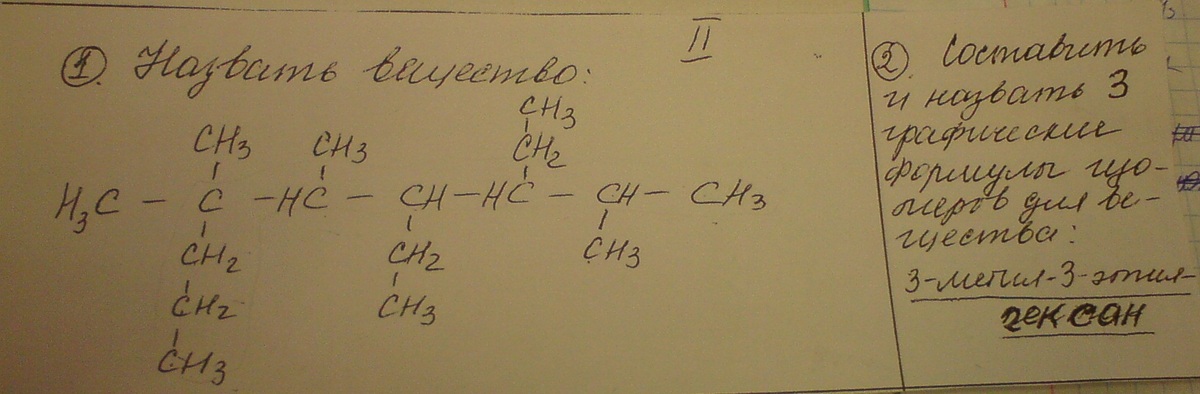 II
1. Назвать вещество:
CH3
CH3 CH3 CH2
H3C – C – HC – CH – HC – CH – CH3
CH2 CH2 CH3
CH2 CH3
CH3
2. Составить
и назвать 3
графические
формулы изо-
меров для ве-
щества:
3-метил-3-этил-
гексан